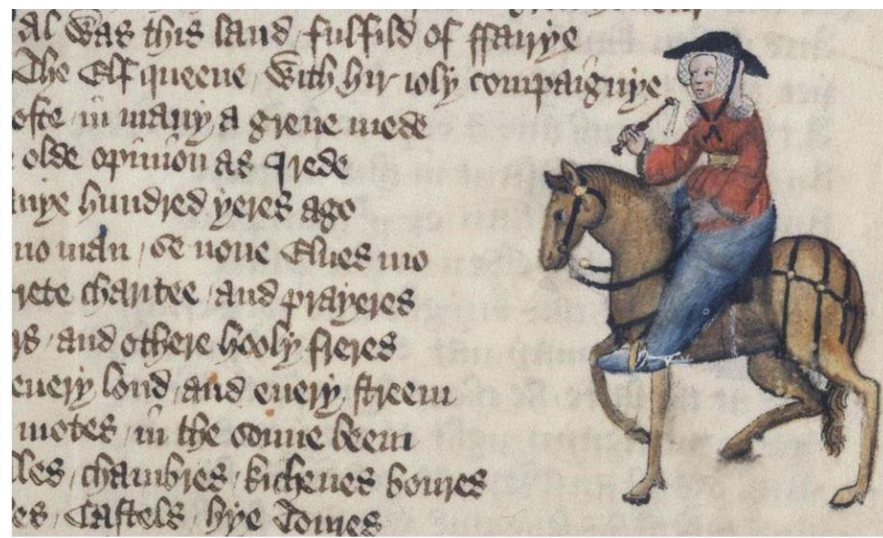 al was this land / fulfild of ffairye
The Elf queene / with hir ioly compaignye
ofte / in many a grene mede
olde opinion as I rede
anye hundred yeres ago
no man / se none Elues mo
rete charitee / and prayeres
rs / and othere hooly freres
euery lond / and euery streem
motes / in the sonne beem
lles / chambres / kichenes boures
es / Castels / hye Toures